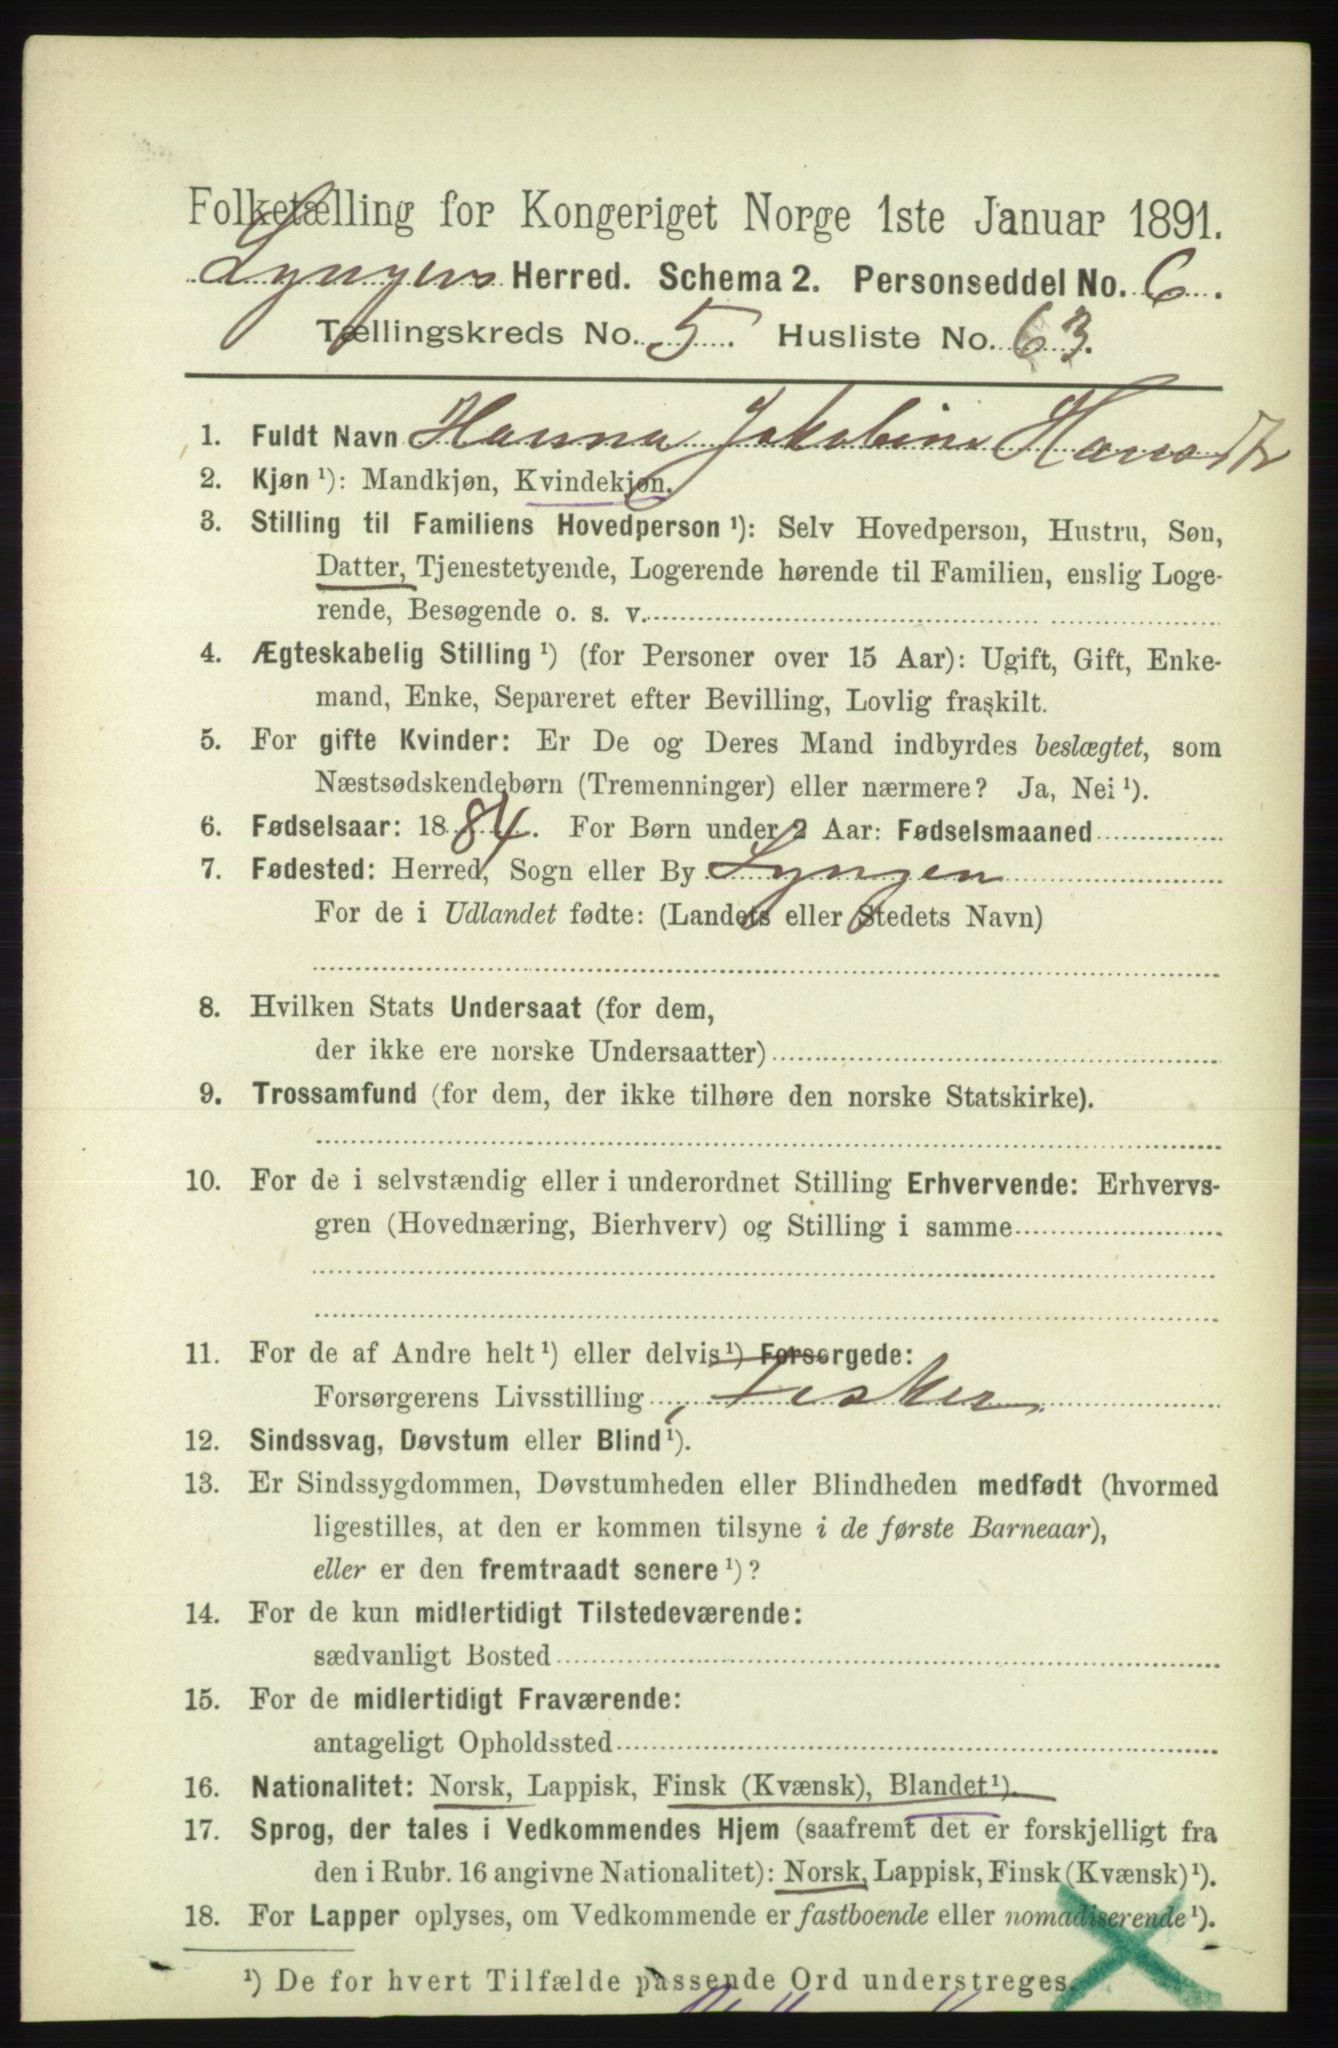 Folketælling for Kongeriget Norge 1ste Januar 1891.
Lyngens Herred. Schema 2. Personseddel No. 6.
Tællingskreds No. 5. Husliste No. 63.
1. Fuldt Navn Hanna Jakobine Hansdtr
2. Kjøn ¹): Mandkjøn, Kvindekjøn.
3. Stilling til Familiens Hovedperson ¹): Selv Hovedperson, Hustru, Søn,
Datter, Tjenestetyende, Logerende hørende til Familien, enslig Loge-
rende, Besøgende o. s. v.
4. Ægteskabelig Stilling ¹) (for Personer over 15 Aar): Ugift, Gift, Enke-
mand, Enke, Separeret efter Bevilling, Lovlig fraskilt.
5. For gifte Kvinder: Er De og Deres Mand indbyrdes beslægtet, som
Næstsødskendebørn (Tremenninger) eller nærmere? Ja, Nei ¹).
6. Fødselsaar: 1884. For Børn under 2 Aar: Fødselsmaaned
7. Fødested: Herred, Sogn eller By Lyngen
For de i Udlandet fødte: (Landets eller Stedets Navn)
8. Hvilken Stats Undersaat (for dem,
der ikke ere norske Undersaatter)
9. Trossamfund (for dem, der ikke tilhøre den norske Statskirke).
10. For de i selvstændig eller i underordnet Stilling Erhvervende: Erhvervs-
gren (Hovednæring, Bierhverv) og Stilling i samme
11. For de af Andre helt ¹) eller delvis ¹) Forsørgede:
Forsørgerens Livsstilling Fisker
12. Sindssvag, Døvstum eller Blind ¹).
13. Er Sindssygdommen, Døvstumheden eller Blindheden medfødt (hvormed
ligestilles, at den er kommen tilsyne i de første Barneaar),
eller er den fremtraadt senere ¹)?
14. For de kun midlertidigt Tilstedeværende:
sædvanligt Bosted
15. For de midlertidigt Fraværende:
antageligt Opholdssted
16. Nationalitet: Norsk, Lappisk, Finsk (Kvænsk), Blandet ¹).
17. Sprog, der tales i Vedkommendes Hjem (saafremt det er forskjelligt fra
den i Rubr. 16 angivne Nationalitet): Norsk, Lappisk, Finsk (Kvænsk) ¹).
18. For Lapper oplyses, om Vedkommende er fastboende eller nomadiserende ¹).
¹) De for hvert Tilfælde passende Ord understreges.